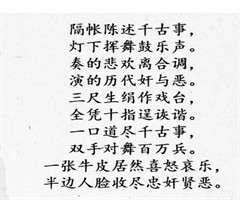 隔帐陈述千古事，
灯下挥舞鼓乐声。
奏的悲欢离合调，
演的历代奸与恶。
三尺生绢作戏台，
全凭十指逞诙谐。
一口道尽千古事，
双手对舞百万兵。
一张牛皮居然喜怒哀乐，
半边人脸收尽忠奸贤恶。